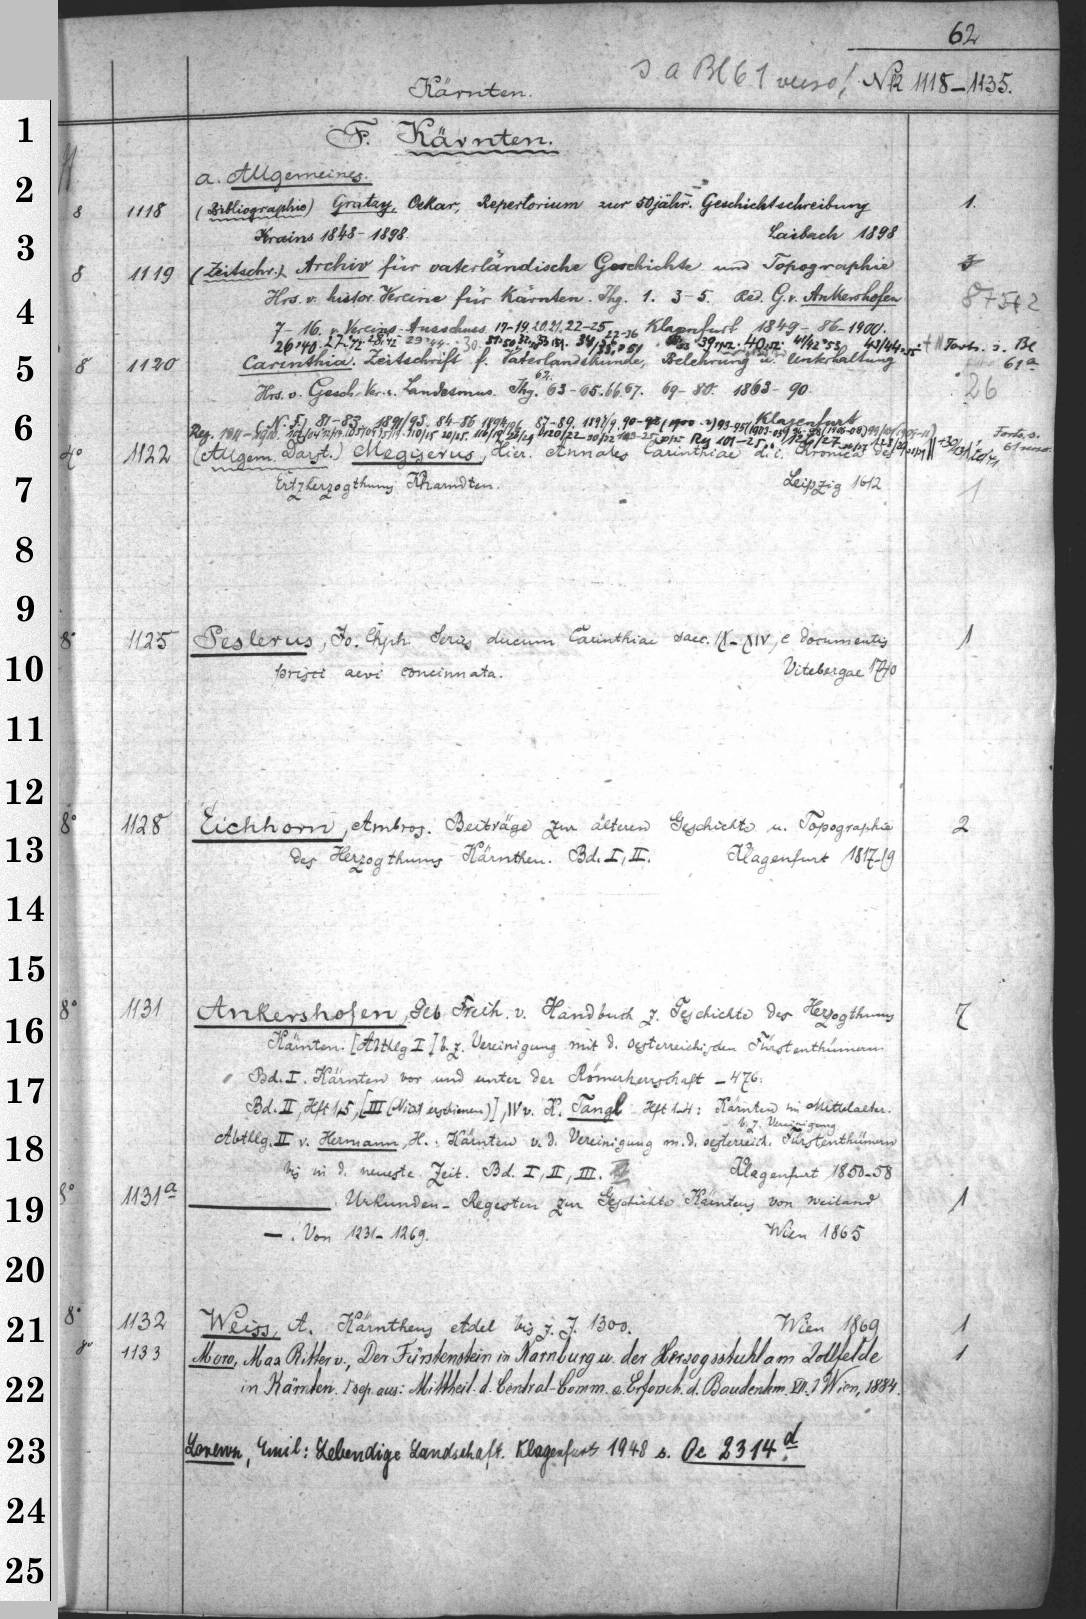 62
s a Bl 61 verso! № 1118–1135.
Kärnten.
F. Kärnten.
a. Allgemeines.
8 1118 (Bibliographie) Gratzy, Oskar, Repertorium zur 50jähr. Geschichtschreibung 1.
Krains 1848–1898. Laibach 1898
8 1119 (Zeitschr.) Archiv für vaterländische Geschichte und Topographie
Hrs. v. histor. Vereine für Kärnten. Jhg. 1. 3–5. Red. G. v. Ankershofen 8+5+2
7–16. v. Vereins-Ausschuss. 17–19. 20. 21. 22–25 Klagenfurt 1849–86–1900.
Forts. s. Bl
8 1120 Carinthia. Zeitschrift f. Vaterlandskunde, Belehrung u. Unterhaltung 61a
Hrs. v. Gesch.-Ver. u. Landesmus. Jhg. 63–65. 66. 67. 69–80. 1863–90. 26
81–83. 1891/93. 84–86 87–89. Klagenfurt
Forts. s.
61 verso
4° 1122 (Allgem. Darst.) Megiserus, Hier. Annales Carinthiae d. i. Chronica des
Ertzherzogthums Kharndten. Leipzig 1612 1
8° 1125 Peslerus, Jo. Chph. Series ducum Carinthiae saec. IX–XIV, e documentis 1
prisci aevi concinnata. Vitebergae 1740
8° 1128 Eichhorn, Ambros. Beiträge zur älteren Geschichte u. Topographie 2
des Herzogthums Kärnthen. Bd. I, II. Klagenfurt 1817–19
8° 1131 Ankershofen, Gtb Freih. v. Handbuch z. Geschichte des Herzogthums 7
Kärnten. [Abthlg I] b. z. Vereinigung mit d. oesterreichischen Fürstenthümern.
Bd. I. Kärnten vor und unter der Römerherrschaft –476.
Bd. II, Hft 1–5, [III (Nicht erschienen)], IV v. K. Tangl Hft 1–4: Kärnten im Mittelalter.
– b. z. Vereinigung
Abthlg. II v. Hermann, H.: Kärnten v. d. Vereinigung m. d. oesterreich. Fürstenthümern
bis in d. neueste Zeit. Bd. I, II, III. Klagenfurt 1850–58
8° 1131a ——— Urkunden-Regesten zur Geschichte Kärntens von weiland 1
—. Von 1231–1269. Wien 1865
8° 1132 Weiss, A. Kärnthens Adel bis z. J. 1300. Wien 1869 1
1133 Moro, Max Ritter v., Der Fürstenstein in Karnburg u. der Herzogsstuhl am Zollfelde 1
in Kärnten. [Sep. aus: Mittheil. d. Central-Comm. z. Erforsch. d. Baudenkm. VII.] Wien, 1884.
Lorenz, Emil: Lebendige Landschaft. Klagenfurt 1948 s. Oe 2314d
1
2
3
4
5
6
7
8
9
10
11
12
13
14
15
16
17
18
19
20
21
22
23
24
25